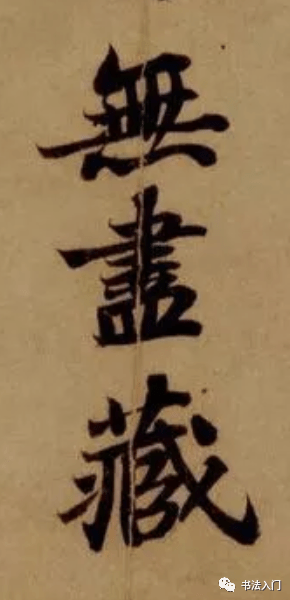 無盡藏
书法入门